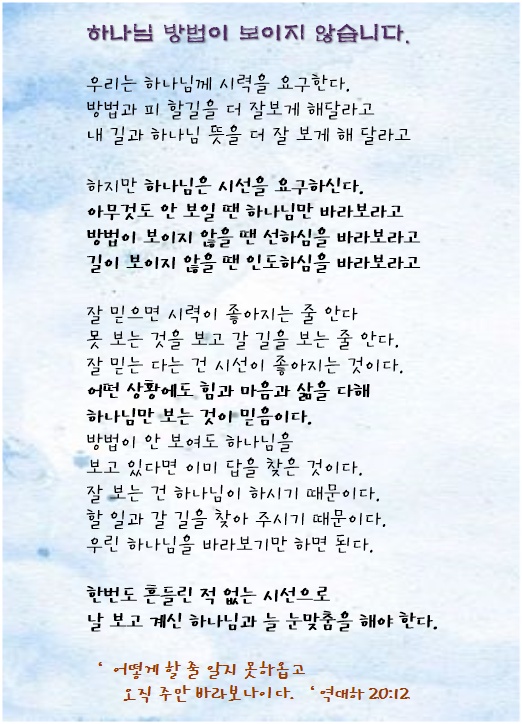 하나님 방법이 보이지 않습니다.
우리는 하나님께 시력을 요구한다.
방법과 피 할길을 더 잘보게 해달라고
내 길과 하나님 뜻을 더 잘 보게 해 달라고
하지만 하나님은 시선을 요구하신다.
아무것도 안 보일 땐 하나님만 바라보라고
방법이 보이지 않을 땐 선하심을 바라보라고
길이 보이지 않을 땐 인도하심을 바라보라고
잘 믿으면 시력이 좋아지는 줄 안다
못 보는 것을 보고 갈 길을 보는 줄 안다.
잘 믿는 다는 건 시선이 좋아지는 것이다.
어떤 상황에도 힘과 마음과 삶을 다해
하나님만 보는 것이 믿음이다.
방법이 안 보여도 하나님을
보고 있다면 이미 답을 찾은 것이다.
잘 보는 건 하나님이 하시기 때문이다.
할 일과 갈 길을 찾아 주시기 때문이다.
우린 하나님을 바라보기만 하면 된다.
한번도 흔들린 적 없는 시선으로
날 보고 계신 하나님과 늘 눈맞춤을 해야 한다.
‘ 어떻게 할 줄 알지 못하옵고
오직 주만 바라보나이다. ‘ 역대하 20:12